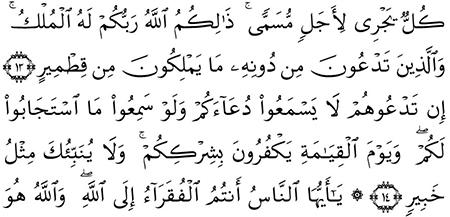 كُلٌّ يَجْرِى لِأَجَلٍ مُّسَمًّى ۚ ذَٰلِكُمُ ٱللَّهُ رَبُّكُمْ لَهُ ٱلْمُلْكُ ۚ
وَٱلَّذِينَ تَدْعُونَ مِن دُونِهِۦ مَا يَمْلِكُونَ مِن قِطْمِيرٍ ﴿١٣﴾
إِن تَدْعُوهُمْ لَا يَسْمَعُوا۟ دُعَآءَكُمْ وَلَوْ سَمِعُوا۟ مَا ٱسْتَجَابُوا۟
لَكُمْ ۖ وَيَوْمَ ٱلْقِيَـٰمَةِ يَكْفُرُونَ بِشِرْكِكُمْ ۚ وَلَا يُنَبِّئُكَ مِثْلُ
خَبِيرٍ ﴿١٤﴾ ۞ يَـٰٓأَيُّهَا ٱلنَّاسُ أَنتُمُ ٱلْفُقَرَآءُ إِلَى ٱللَّهِ ۖ وَٱللَّهُ هُوَ